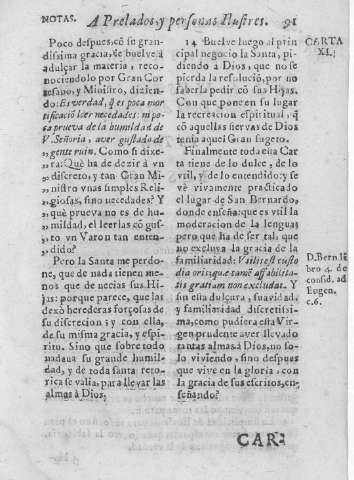 NOTAS. A Prelados, y personas Ilustres. 91
Poco despues, cō se gran-
dissima gracia, se buelve à
adulçar la materia, reco-
nociendolo por Gran Cor-
tesano, y Ministro, dizien-
do: Es verdad, q̃ es poca mor
tificaciõ leer necedades: ni po-
sa prueva de la humildad de
V. Señoria, aver gustado de
„ gente ruin. Como si dixe-
„ ra: Què ha de dezir à vn
„ discreto, y tan Gran Mi-
„ nistro vnas simples Reli-
„ giosas, sino necedades? Y
„ què prueva no es de hu-
„ mildad, el leerlas cō gus-
„ to vn Varon tan enten-
„ dido?
Pero la Santa me perdo-
ne, que de nada tienen me-
nos que de necias sus Hi-
jas: porque parece, que las
dexò herederas forçosas de
su discrecion; y con ella,
de su misma gracia, y espi-
ritu. Sino que sobre todo
nadava su grande humil-
dad, y de toda santa reto-
rica se valia, para llevar las
almas à Dios.
14 Buelve luego al prin
cipal negocio la Santa, pi-
diendo à Dios, que no se
pierda la resoluciõ, por no
saberla pedir cō sus Hijas.
Con que ponen su lugar
la recreacion espiritual, q̃
cō aquellas siervas de Dios
tenia aquel Gran sugeto.
Finalmente toda esta Car
ta tiene de lo dulce, de lo
vtil, y de lo entendido: y se
vè vivamente practicado
el lugar de San Bernardo,
donde enseña: que es vtil la
moderacion de la lengua;
pero que ha de ser tal, que
no excluya la gracia de la
familiaridad: Vtilis est custo
dia oris; quæ tamē affabilita-
tis gratiam non excludat. Y
sin esta dulçura, suavidad,
y familiaridad discretissi-
ma, como pudiera esta Vir-
gen prudente aver llevado
tantas almas à Dios, no so-
lo viviendo, sino despues
que vive en la gloria, con
la gracia de sus escritos, en-
señando?
CARTA
XI.
D. Bern. li
bro 4. de
consid. ad
Eugen.
c.6.
CAR-